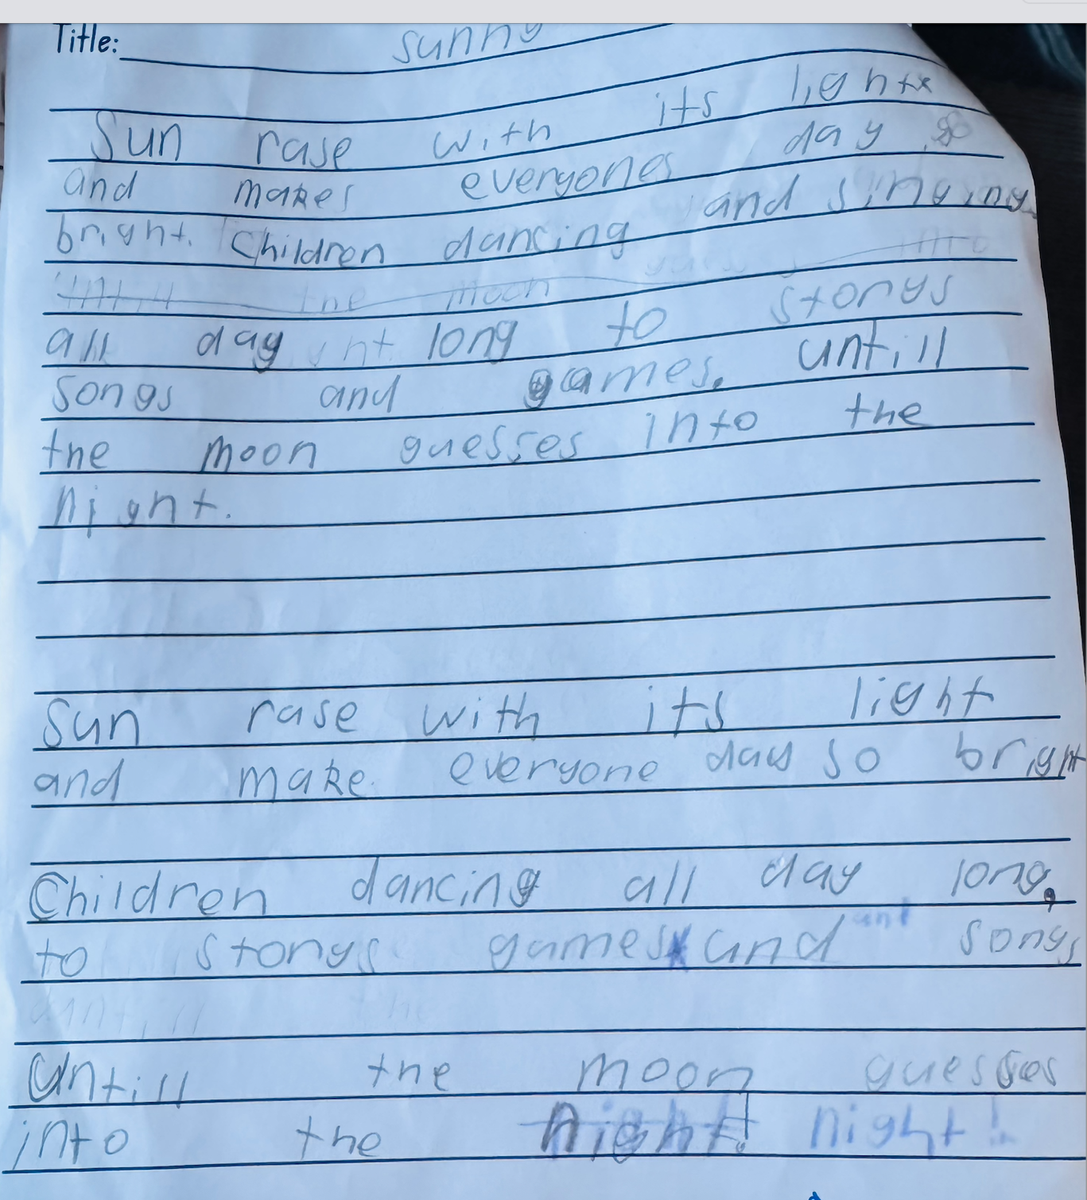 Title: sunny
Sun rase with its light
and makes everyones day so
bright. Children dancing and singing
untill the moon guesses into
all day long to storys
songs and games. untill
the moon guesses into the
night.
Sun rase with its light
and make everyone day so bright
Children dancing all day long,
to storys games and and songs
untill the
Untill the moon guesses
into the night! night!